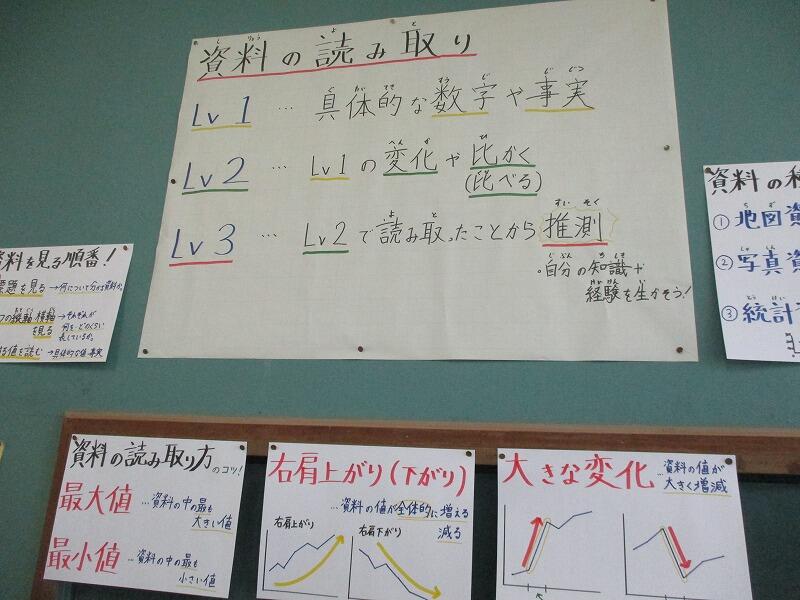 資料の読み取り
Lv1 … 具体的な数字や事実
Lv2 … Lv1の変化や比かく
(比べる)
Lv3 … Lv2で読み取ったことから推測
・自分の知識や
経験を生かそう!
料を見る順番!
題を見る→何について
縦軸 横軸→それぞれが
を見る 何をどのくらい
表しているか。
値を読む→具体的な値 事実
資料の
①地図資
②写真資
③統計
資料の読み取り方のコツ!
最大値…資料の中の最も
大きい値
最小値…資料の中の最も
小さい値
右肩上がり(下がり)
…資料の値が全体的に増える
減る
右肩上がり 右肩下がり
大きな変化…資料の値が
大きく増減